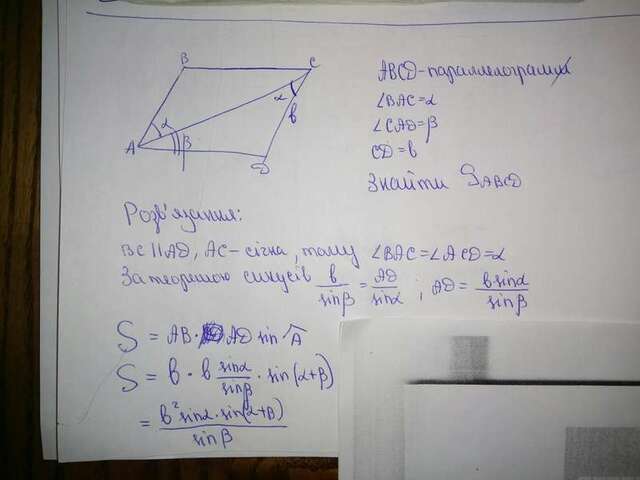 B
C
α
b
α
β
A
D
ABCD-параллелограмм
∠BAC=α
∠CAD=β
CD=b
Знайти S_ABCD
Розв'язання:
BC||AD, AC-січна, тому ∠BAC=∠ACD=α
За теоремою синусів b/sinβ = AD/sinα ; AD = b sinα/sinβ
S = AB · AD sin A
S = b · b sinα/sinβ · sin(α+β)
= b² sinα · sin(α+β)/sinβ